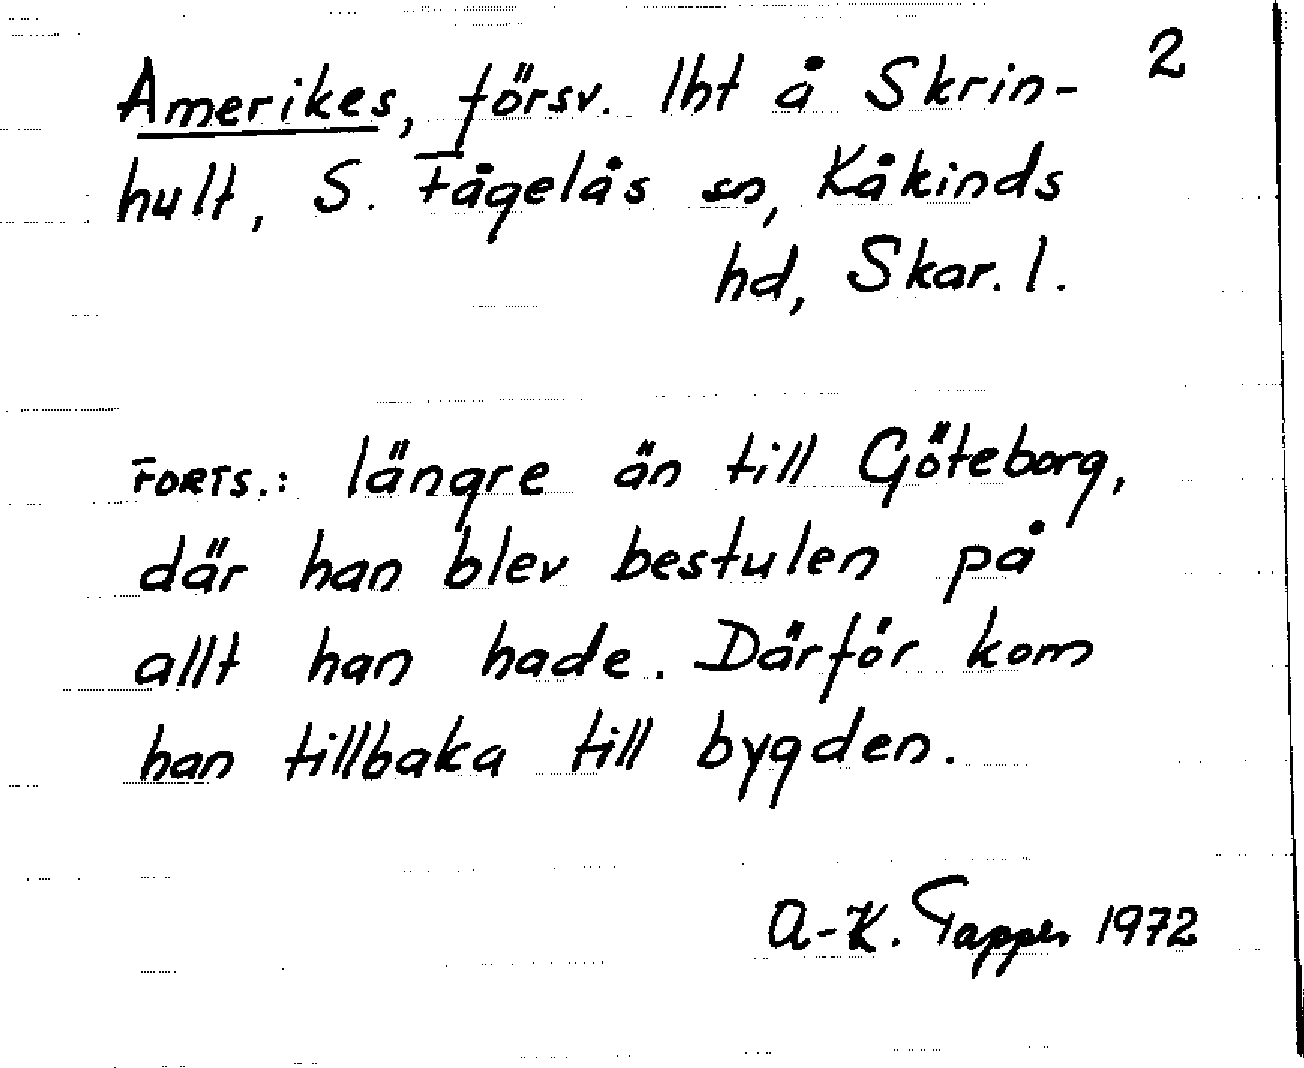 2
Amerikes, försv. lht å Skrin-
hult, S. Fågelås sn, Kåkinds
hd, Skar. l.
FORTS.: längre än till Göteborg,
där han blev bestulen på
allt han hade. Därför kom
han tillbaka till bygden.
A-K. Tapper 1972